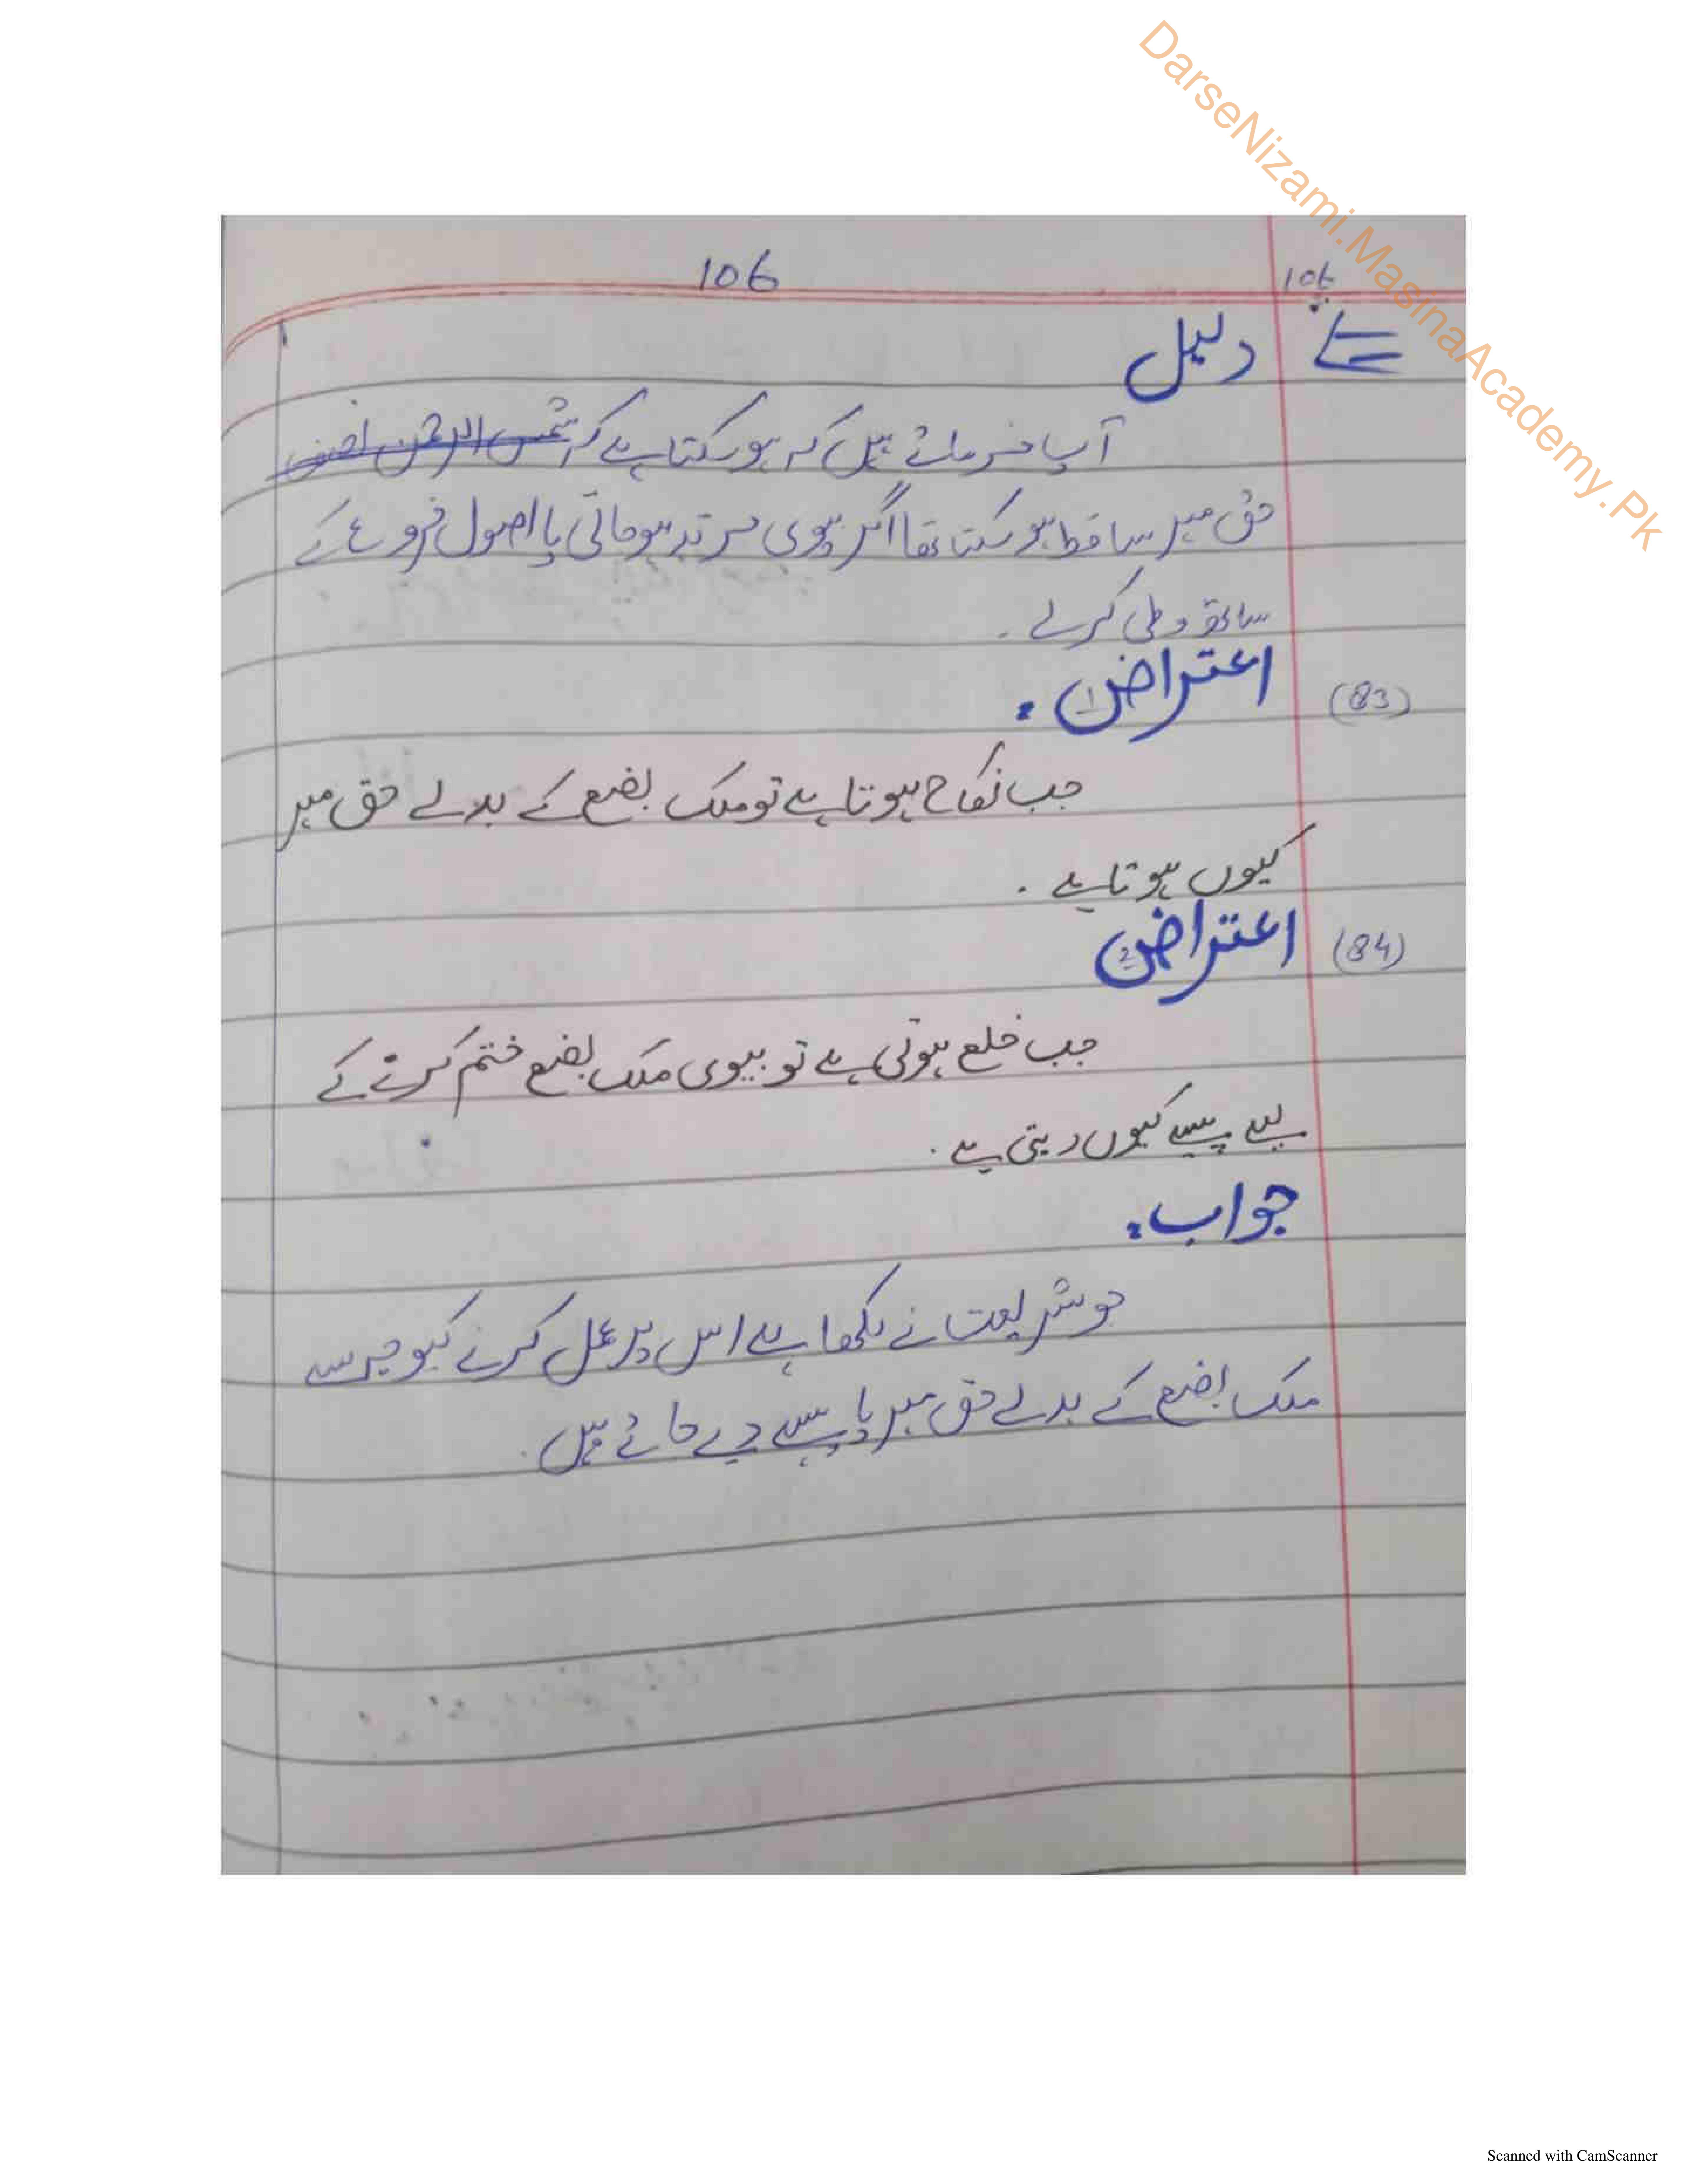 DarseNizami.MasinaAcademy.Pk
106
106
دلیل
آپ فرماتے ہیں کہ ہو سکتا ہے کہ
حق میر ساقط ہو سکتا تھا اگر بیوی مرتد ہو جاتی یا اصول فروع کے
ساتھ وطی کرلے ۔
(83) اعتراض 1 :
جب نکاح ہوتا ہے تو ملک بضع کے بدلے حق میر
کیوں ہوتا ہے ۔
(84) اعتراض 2
جب خلع ہوتی ہے تو بیوی ملک بضع ختم کرنے کے
لیے پیسے کیوں دیتی ہے ۔
جواب :
جو شریعت نے لکھا ہے اس پر عمل کرنے کیوجہ سے
ملک بضع کے بدلے حق میر یا پیسے دیے جاتے ہیں ۔
Scanned with CamScanner